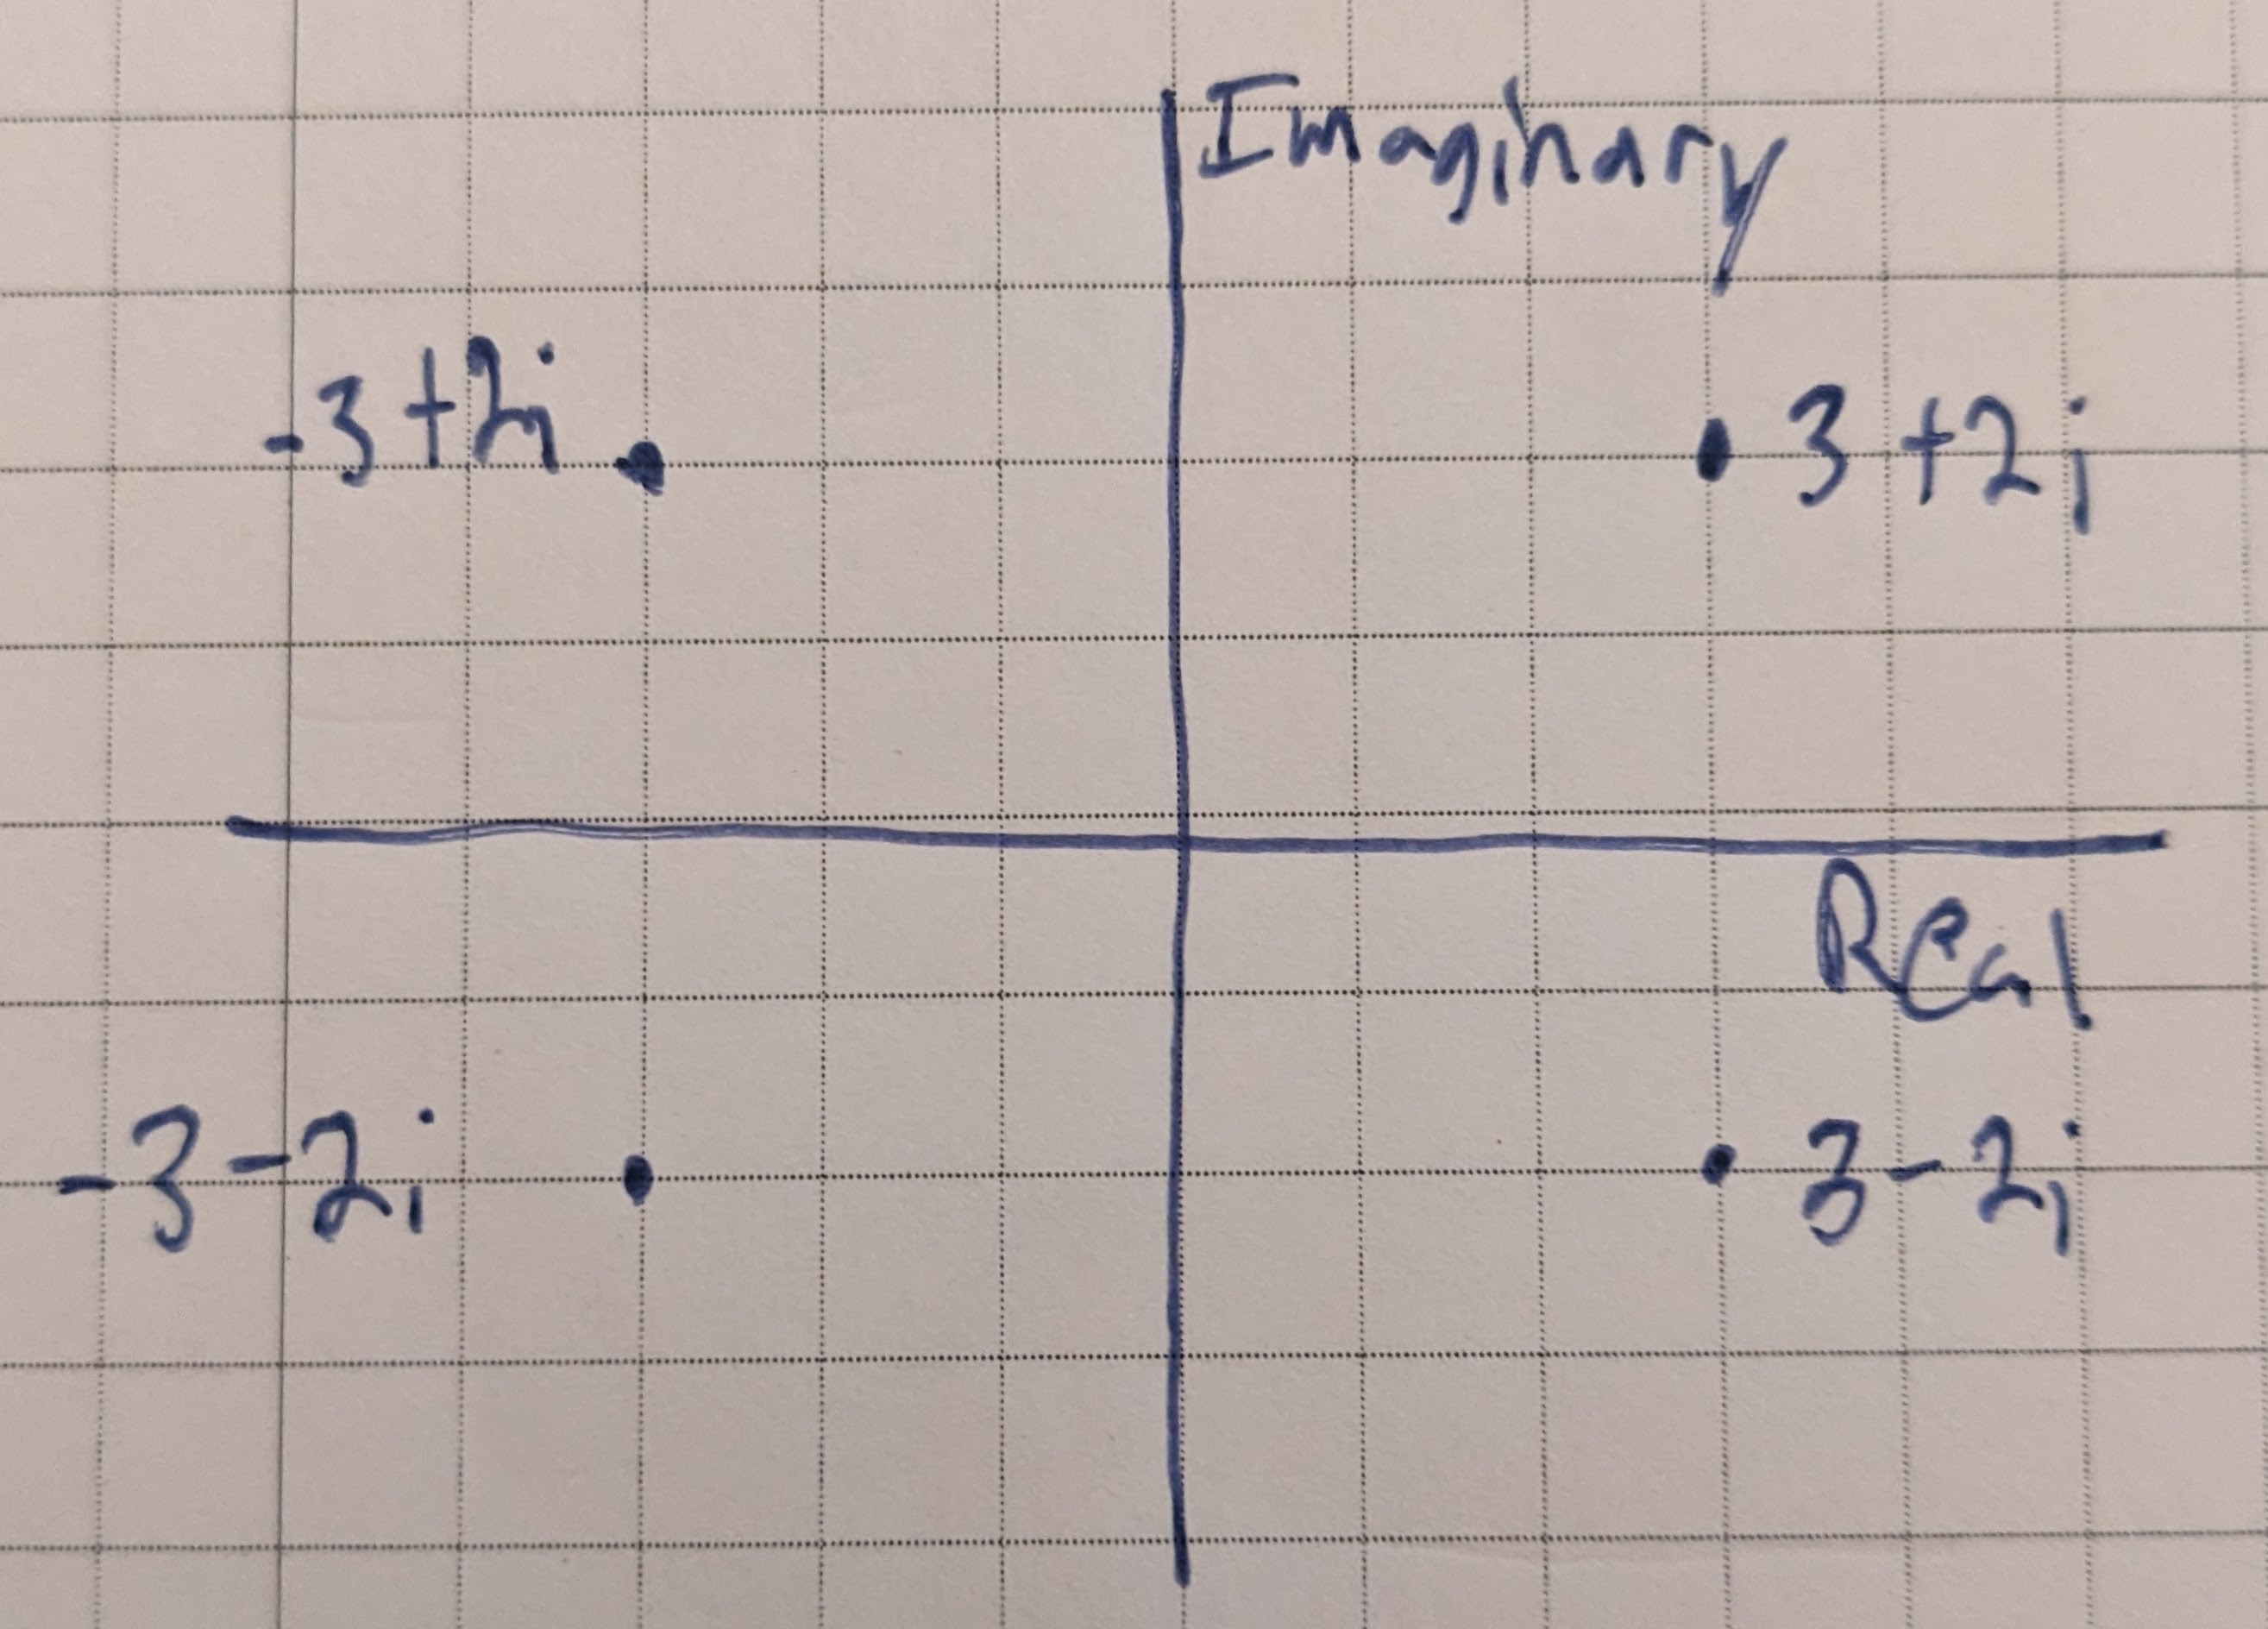 Imaginary
-3+2i
3+2i
Real
-3-2i
3-2i